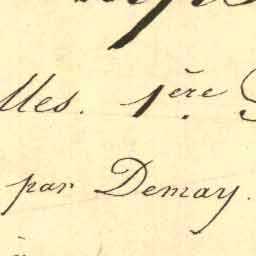 lles. 1.ère
par Demay.